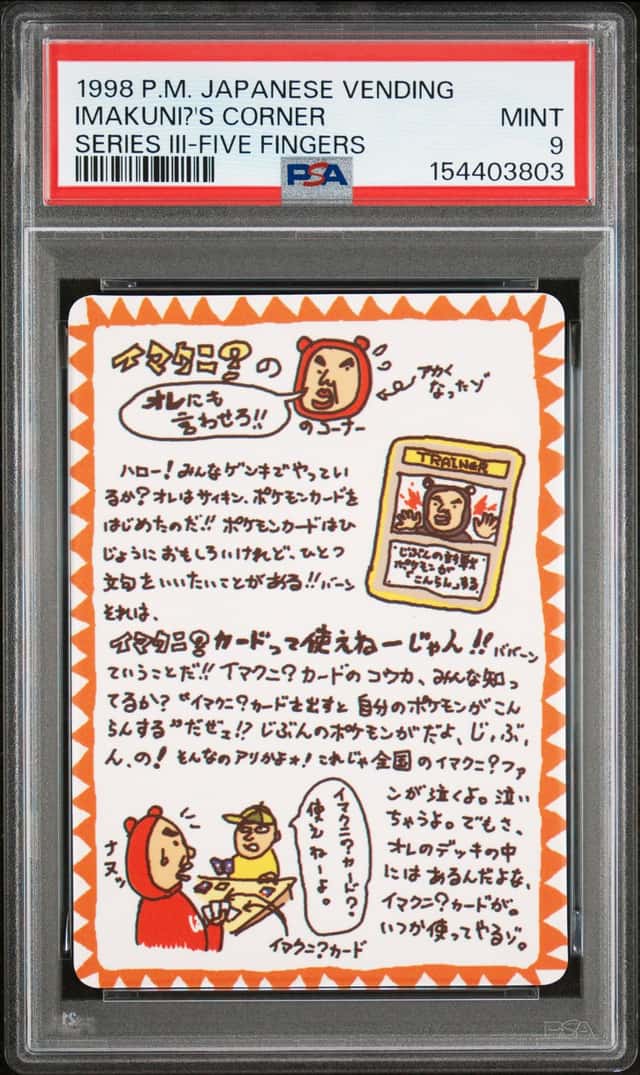 1998 P.M. JAPANESE VENDING
IMAKUNI?'S CORNER
MINT
SERIES III-FIVE FINGERS
9
PSA
154403803
イマクニ?の
オレにも
言わせろ!!
のコーナー
アカく
なったゾ
ハロー!みんなゲンキでやってい
るか?オレはサイキン、ポケモンカードを
はじめたのだ!!ポケモンカードはひ
じょうにおもしろいけれど、ひとつ
文句をいいたいことがある!!バーン
それは、
TRAINER
じぶんの対戦
ポケモンが
「こんらん」する
イマクニ?カードって使えねーじゃん!!ババーン
ていうことだ!!イマクニ?カードのコウカ、みんな知っ
てるか?“イマクニ?カードを出すと自分のポケモンがこん
らんする”だぜェ!?じぶんのポケモンがだよ、じ、ぶ、
ん、の!そんなのアリかよォ!これじゃ全国のイマクニ?ファ
ンが泣くよ。泣い
ちゃうよ。でもさ、
オレのデッキの中
にはあるんだよな、
イマクニ?カードが。
いつか使ってやるゾ。
イマクニ?カード?
使えねーよ。
ナヌッ
イマクニ?カード
PSA